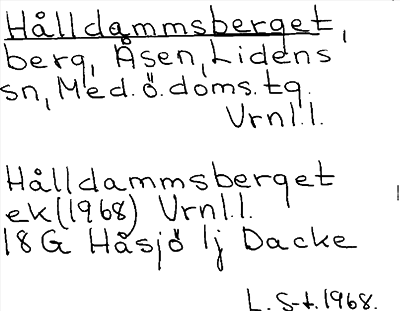 Hålldammsberget,
berg, Åsen, Lidens
sn, Med.ö.doms.tg.
Vrnl.l.
Hålldammsberget
ek(1968) Vrnl.l.
18G Håsjö 1j Dacke
L. S-t. 1968.